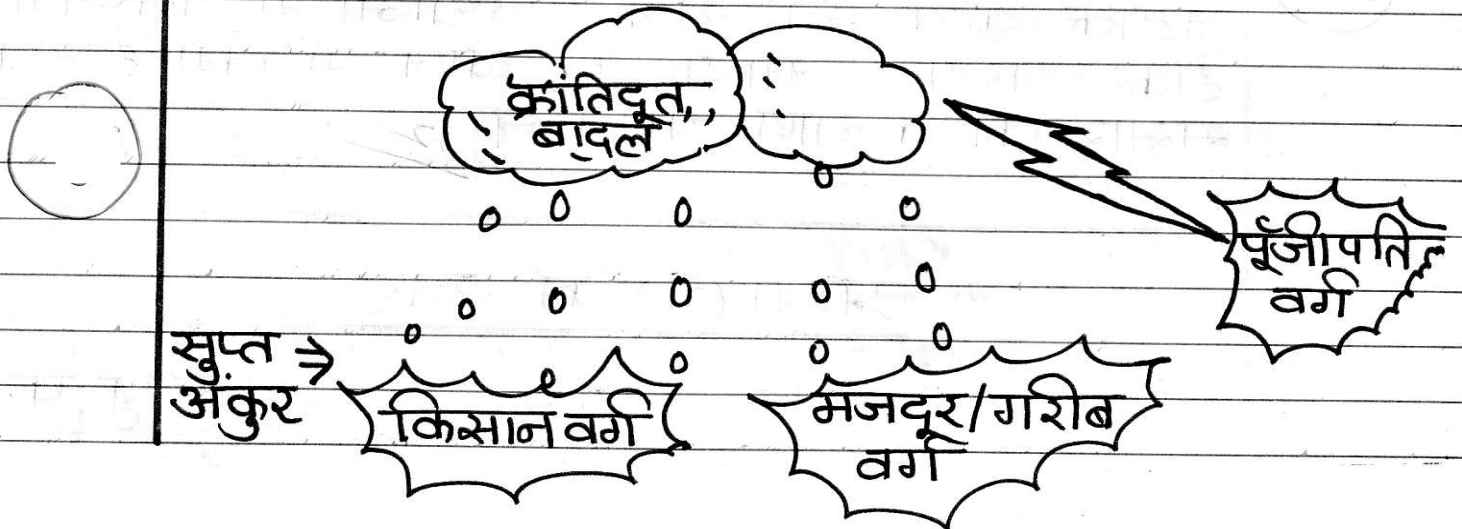 क्रांतिदूत,,
बादल
पूँजीपति
वर्ग
सुप्त ⇒
अंकुर
किसान वर्ग
मजदूर/गरीब
वर्ग